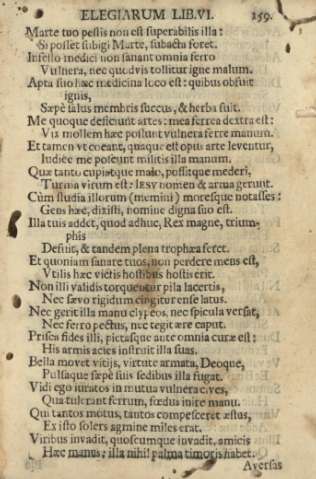 ELEGIARUM LIB. VI. 159.
Marte tuo pestis non est superabilis illa:
Si posset subigi Marte, subacta foret.
Infesso medici non sanant omnia ferro
Vulnera, nec quodvis tollitur igne malum.
Apta suo hæc medicina loco est: quibus obfuit
ignis,
Sæpè talus membris succus, & herba fuit.
Me quoque deficiunt artes: mea ferrea dextra est:
Vix mollem hæc possunt vulnera ferre manum.
Et tamen vt coeant, quaque est opus arte leventur,
Iudice me poscunt militis illa manum.
Quæ tanto cupiatque malo, possitque mederi,
Turma virum est: IESV nomen & arma gerunt.
Cùm studia illorum (memini) moresque notasses:
Gens hæc, dixisti, nomine digna suo est.
Illa tuis addet, quod adhuc, Rex magne, trium-
phis
Defuit, & tandem plena trophæa feret.
Et quoniam sanare tuos, non perdere mens est,
Vtilis hæc victis hostibus hostis erit.
Non illi validis torquentur pila lacertis,
Nec sævo rigidum cingitur ense latus.
Nec gerit illa manu clypeos, nec spicula versat,
Nec ferro pectus, nec tegit ære caput.
Prisca fides illi, pietasque ante omnia curæ est:
His armis acies instruit illa suas.
Bella movet vitijs, virtute armata, Deoque,
Pulsaque sæpè suis sedibus illa fugat.
Vidi ego iuratos in mutua vulnera cives,
Qua tulerant ferrum, fœdua inire manu.
Qui tantos motus, tantos compesceret æstus,
Ex isto solers agmine miles erat.
Viribus invadit, quoscumque invadit, amicis
Hæc manus: illa nihil palma timoris habet.
Aversas